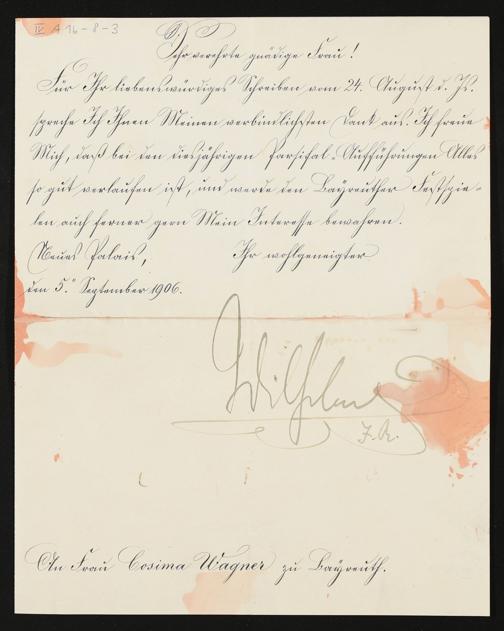 IV A 16-8-3
Sehr verehrte gnädige Frau!
Für Ihr liebenswürdiges Schreiben vom 24. August d. Js.
spreche Ich Ihnen Meinen verbindlichsten Dank aus. Ich freue
Mich, daß bei den diesjährigen Parsifal-Aufführungen Alles
so gut verlaufen ist, und werde den Bayreuther Festspie-
len auch ferner gern Mein Interesse bewahren.
Neues Palais, Ihr wohlgeneigter
den 5. September 1906.
Wilhelm
I. R.
An Frau Cosima Wagner zu Bayreuth.